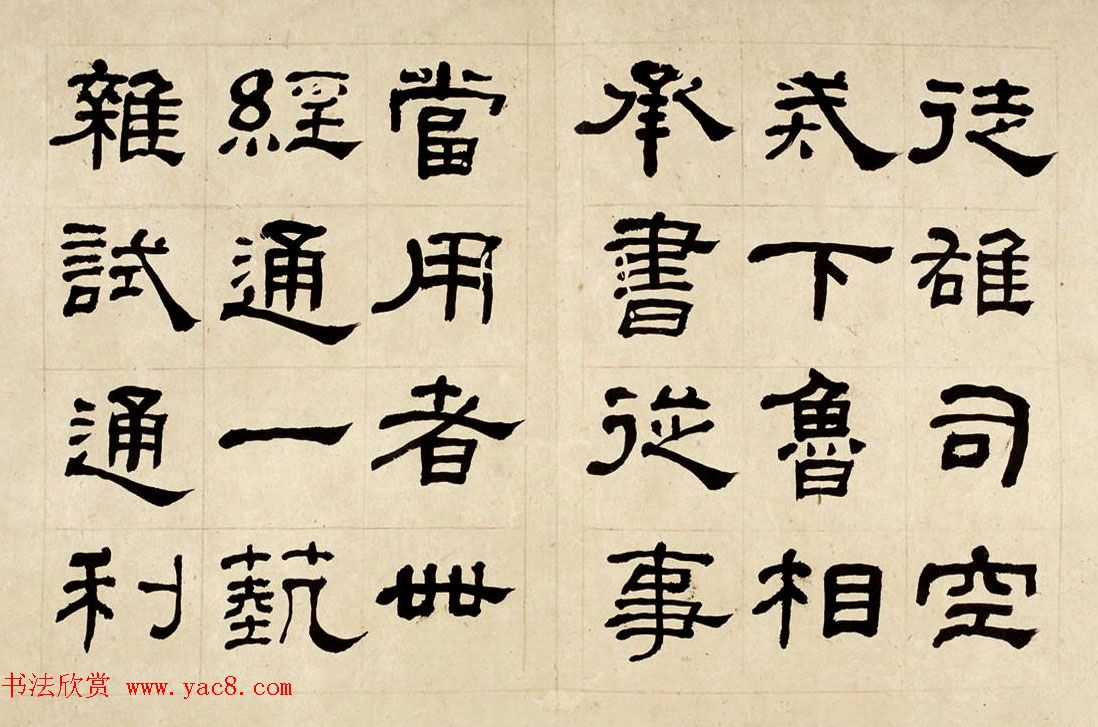 徒雄司空
戒下魯相
承書從事
當用者卌
經通一蓺
雜試通利
书法欣赏 www.yac8.com